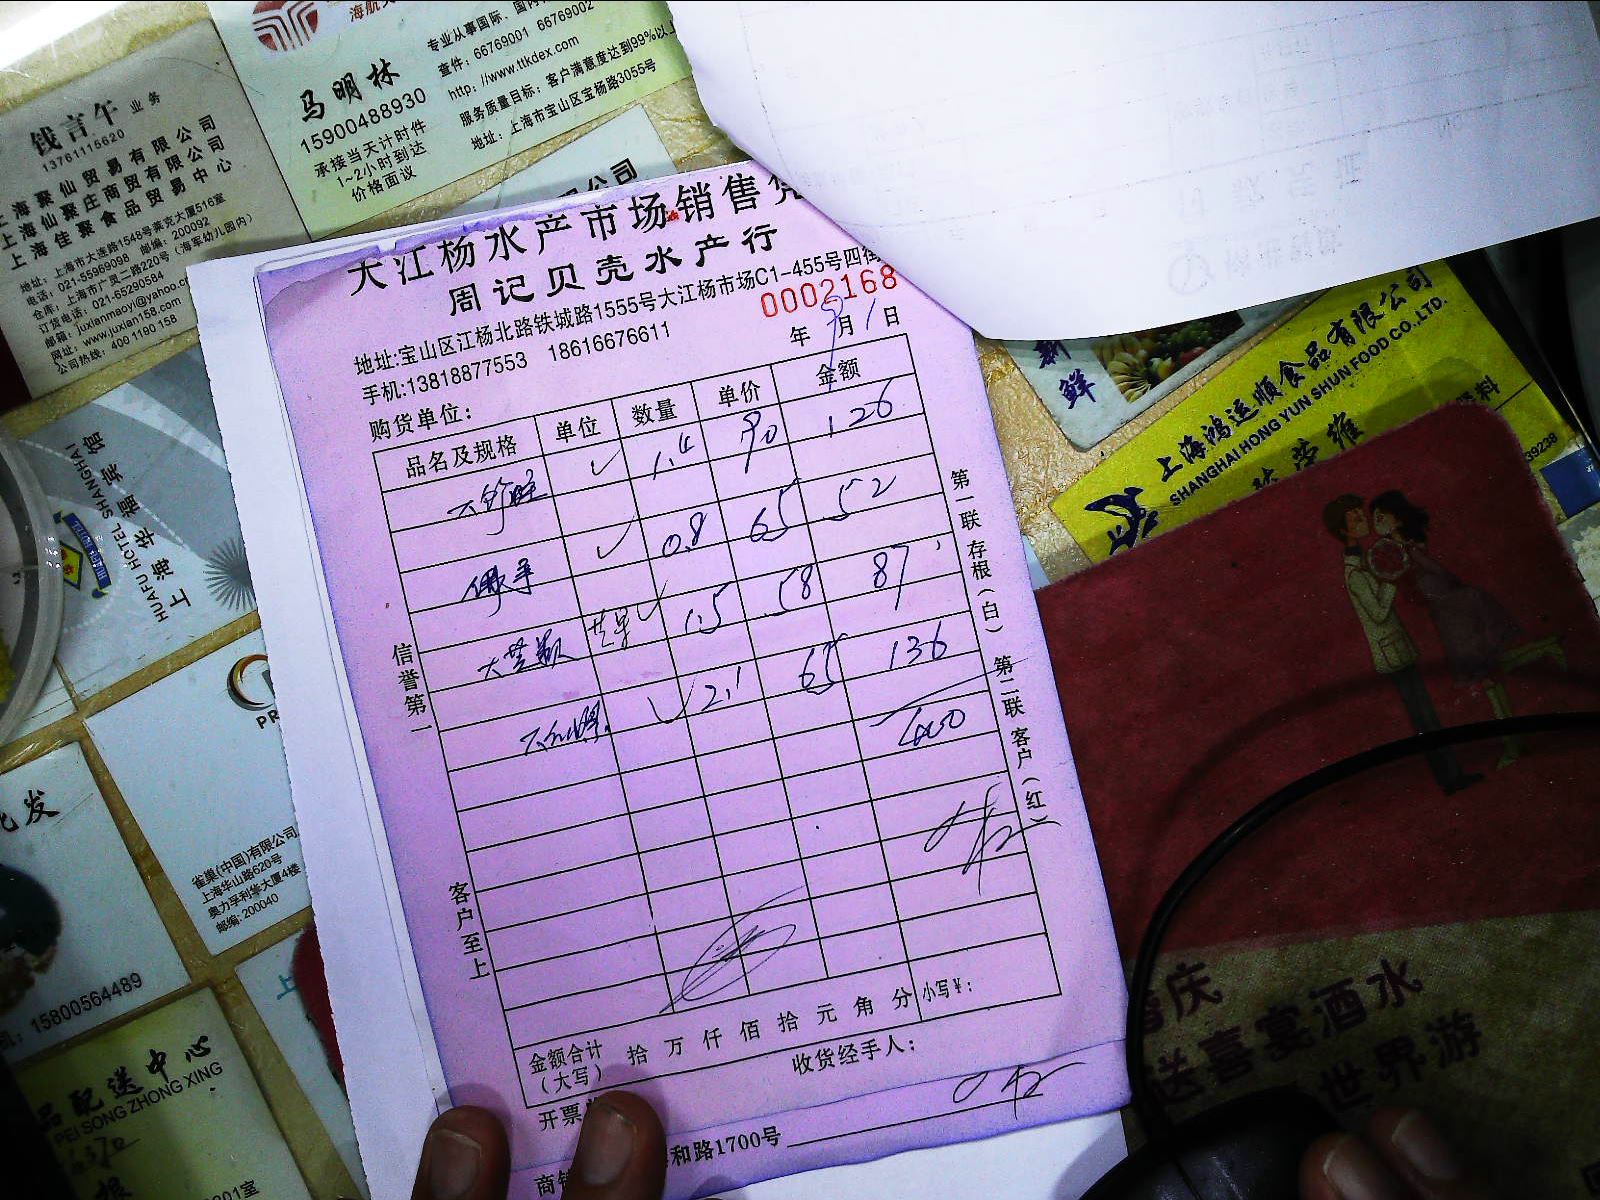 钱言午 业务
13761115620
上海聚仙贸易有限公司
上海仙聚庄商贸有限公司
上海佳聚食品贸易中心
地址：上海市大连路1548号莱克大厦516室
电话：021-55969098 邮编：200092
仓库：上海市广灵二路220号（海军幼儿园内）
订货电话：021-65290584
邮箱：juxianmaoyi@yahoo.co
网址：www.juxian158.com
公司热线：400 1190 158
海航
马明林
15900488930
承接当天计时件
1~2小时到达
价格面议
专业从事国际、国内
查件：66769001 66769002
http://www.ttkdex.com
服务质量目标：客户满意度达到99%以上
地址：上海市宝山区宝杨路3055号
公司
大江杨水产市场销售凭
周记贝壳水产行
地址:宝山区江杨北路铁城路1555号大江杨市场C1-455号四街
手机:13818877553 18616676611
0002168
年 9月1日
购货单位：
品名及规格 单位 数量 单价 金额
1.4 90 126
0.8 65 52
1.5 58 87
2.1 65 136
400
信誉第一
客户至上
第一联 存根（白）
第二联 客户（红）
金额合计（大写） 拾 万 仟 佰 拾 元 角 分 小写¥：
收货经手人：
开票
和路1700号
新鲜
上海鸿运顺食品有限公司
SHANGHAI HONG YUN SHUN FOOD CO.,LTD.
39238
上海华福宾馆
HUAFU HOTEL SHANGHAI
雀巢(中国)有限公司
上海华山路620号
奥力孚利掌大厦4楼
邮编: 200040
批发
15800564489
品配送中心
PEI SONG ZHONG XING
201室
婚庆
送喜宴酒水
世界游